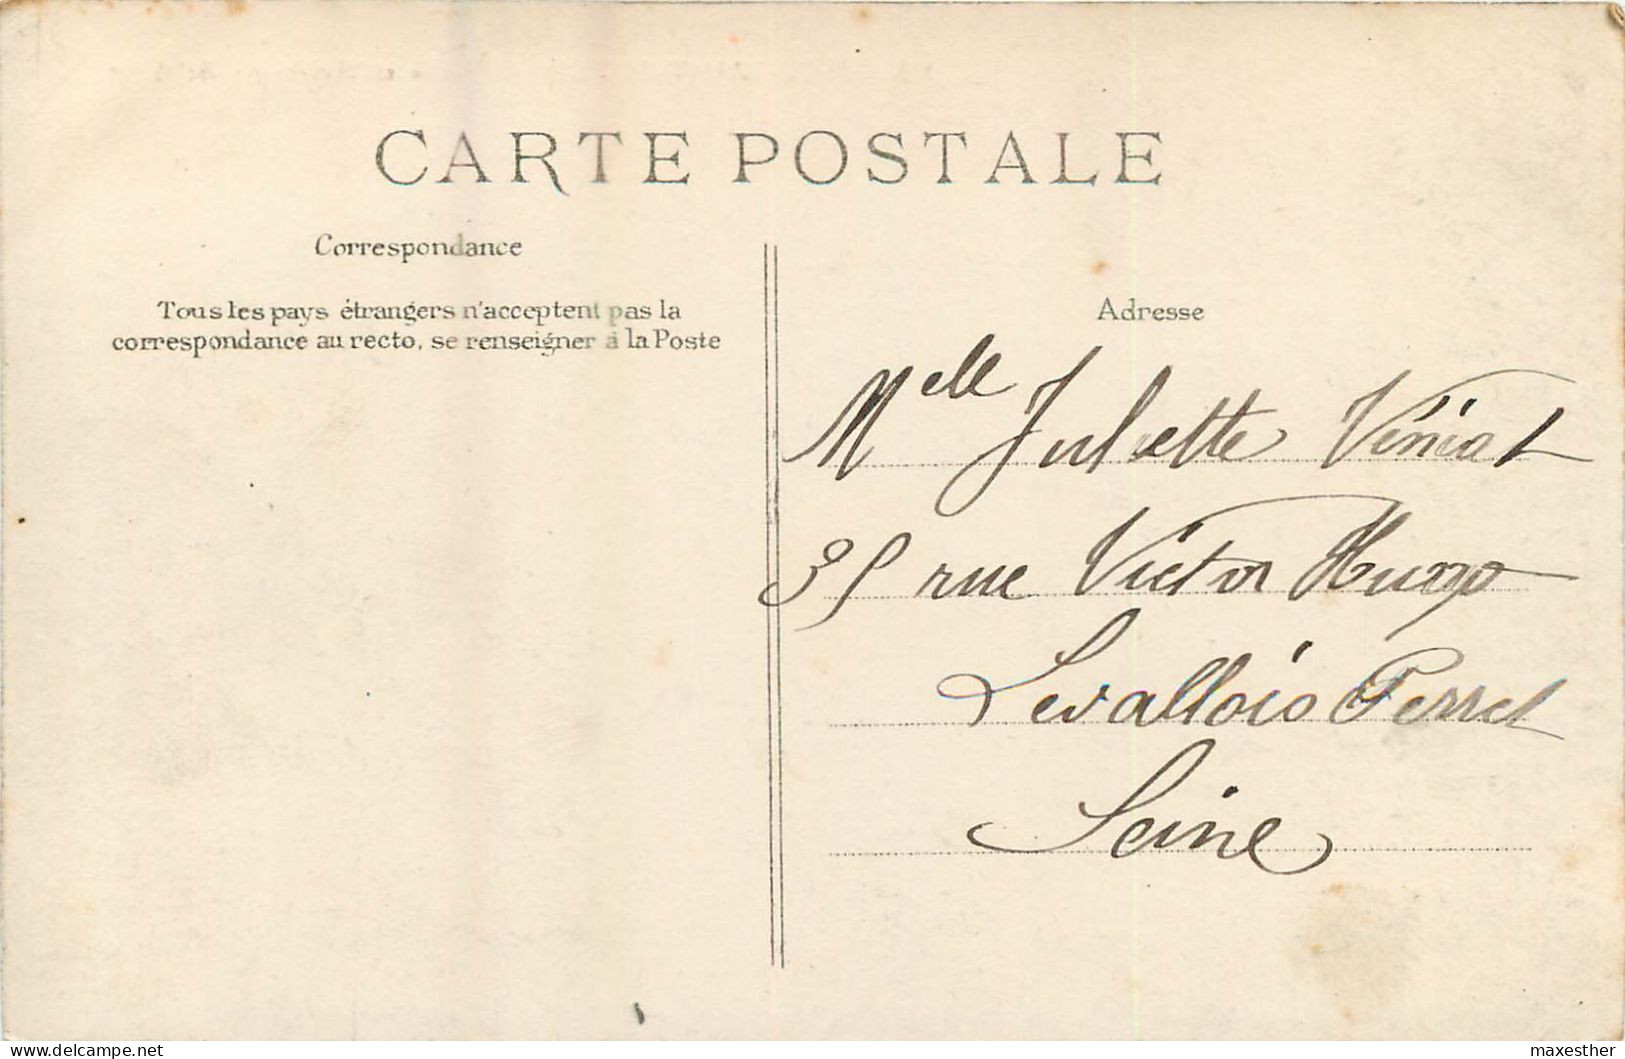 CARTE POSTALE
Correspondance
Tous les pays étrangers n'acceptent pas la
correspondance au recto, se renseigner à la Poste
Adresse
Melle Juliette Véniat
35 rue Victor Hugo
Levallois Perret
Seine
Delcampe.net
maxesther